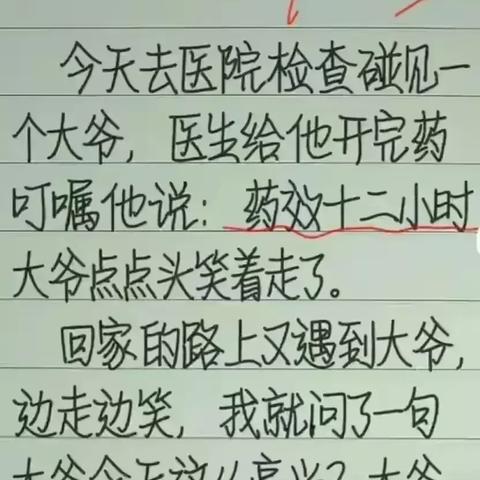 今天去医院检查碰见一
个大爷，医生给他开完药
叮嘱他说：药效十二小时
大爷点点头笑着走了。
回家的路上又遇到大爷，
边走边笑，我就问了一句
大爷今天这么高兴？大爷